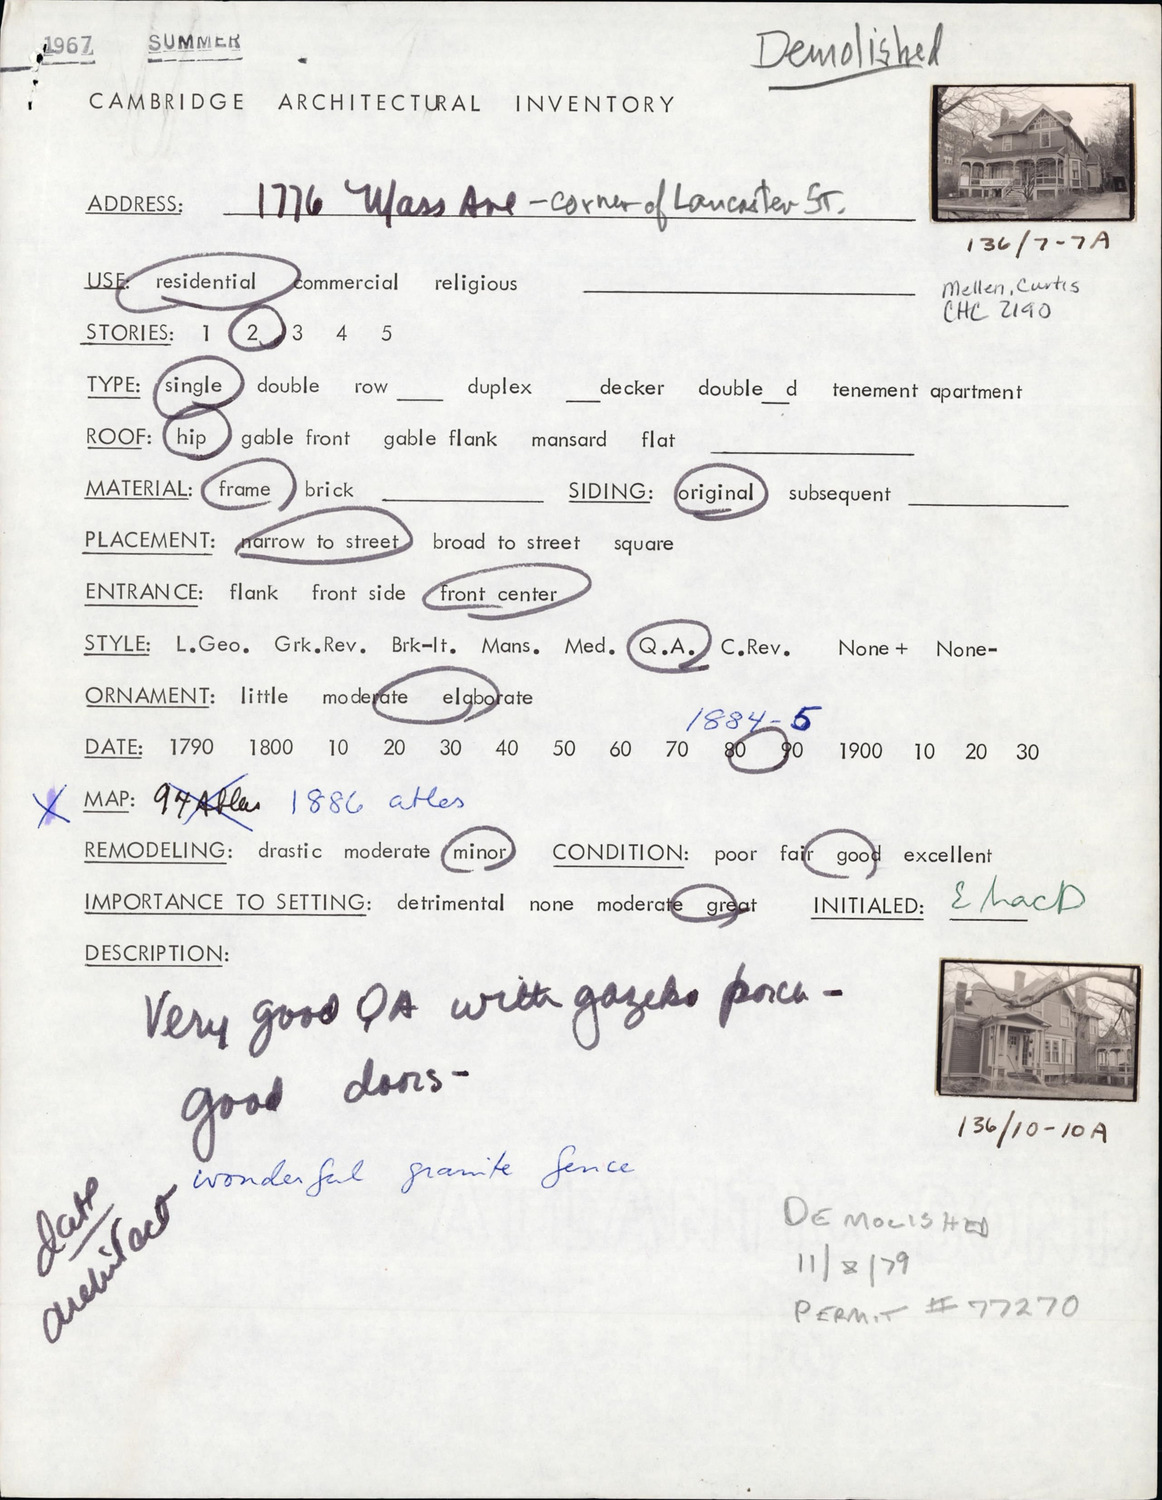 1967 SUMMER
Demolished
CAMBRIDGE ARCHITECTURAL INVENTORY
ADDRESS: 1776 Mass Ave - corner of Lancaster St.
136/7-7A
USE: residential commercial religious
Mellen, Curtis
CHC 2190
STORIES: 1 2 3 4 5
TYPE: single double row ___ duplex ___decker double__d tenement apartment
ROOF: hip gable front gable flank mansard flat
MATERIAL: frame brick SIDING: original subsequent
PLACEMENT: narrow to street broad to street square
ENTRANCE: flank front side front center
STYLE: L.Geo. Grk.Rev. Brk-It. Mans. Med. Q.A. C.Rev. None+ None-
ORNAMENT: little moderate elaborate
1884-5
DATE: 1790 1800 10 20 30 40 50 60 70 80 90 1900 10 20 30
X MAP: 94 Atlas 1886 atlas
REMODELING: drastic moderate minor CONDITION: poor fair good excellent
IMPORTANCE TO SETTING: detrimental none moderate great INITIALED: E MacD
DESCRIPTION:
Very good QA with gazebo porch -
good doors -
136/10-10A
wonderful granite fence
date
architect
DEMOLISHED
11/8/79
PERMIT # 77270